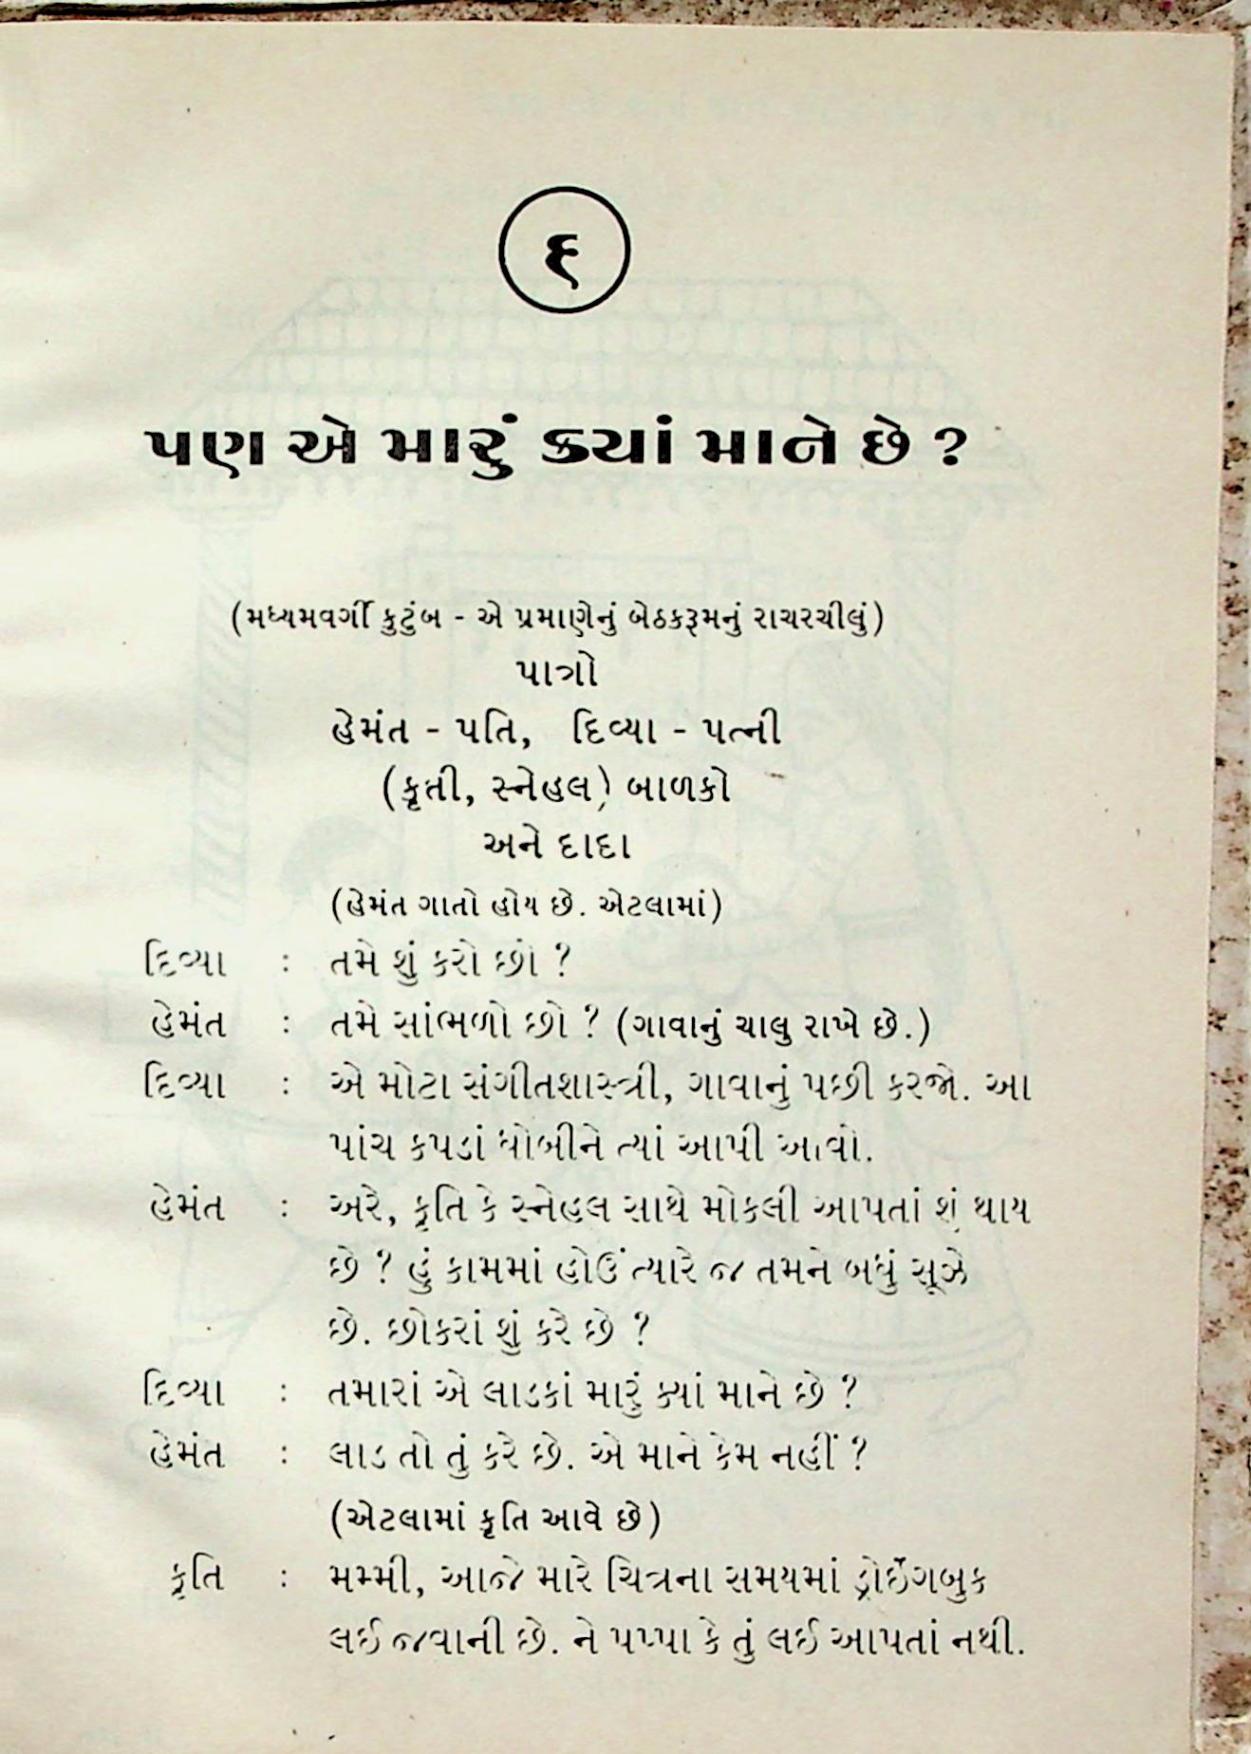 ૬
પણ એ મારું ક્યાં માને છે ?
(મધ્યમવર્ગી કુટુંબ - એ પ્રમાણેનું બેઠકરૂમનું રાચરચીલું)
પાત્રો
હેમંત - પતિ, દિવ્યા - પત્ની
(કૃતી, સ્નેહલ) બાળકો
અને દાદા
(હેમંત ગાતો હોય છે. એટલામાં)
દિવ્યા : તમે શું કરો છો ?
હેમંત : તમે સાંભળો છો ? (ગાવાનું ચાલુ રાખે છે.)
દિવ્યા : એ મોટા સંગીતશાસ્ત્રી, ગાવાનું પછી કરજો. આ
પાંચ કપડાં ધોબીને ત્યાં આપી આવો.
હેમંત : અરે, કૃતિ કે સ્નેહલ સાથે મોકલી આપતાં શું થાય
છે ? હું કામમાં હોઉં ત્યારે જ તમને બધું સૂઝે
છે. છોકરાં શું કરે છે ?
દિવ્યા : તમારાં એ લાડકાં મારું ક્યાં માને છે ?
હેમંત : લાડ તો તું કરે છે. એ માને કેમ નહીં ?
(એટલામાં કૃતિ આવે છે)
કૃતિ : મમ્મી, આજે મારે ચિત્રના સમયમાં ડ્રોઈંગબુક
લઈ જવાની છે. ને પપ્પા કે તું લઈ આપતાં નથી.